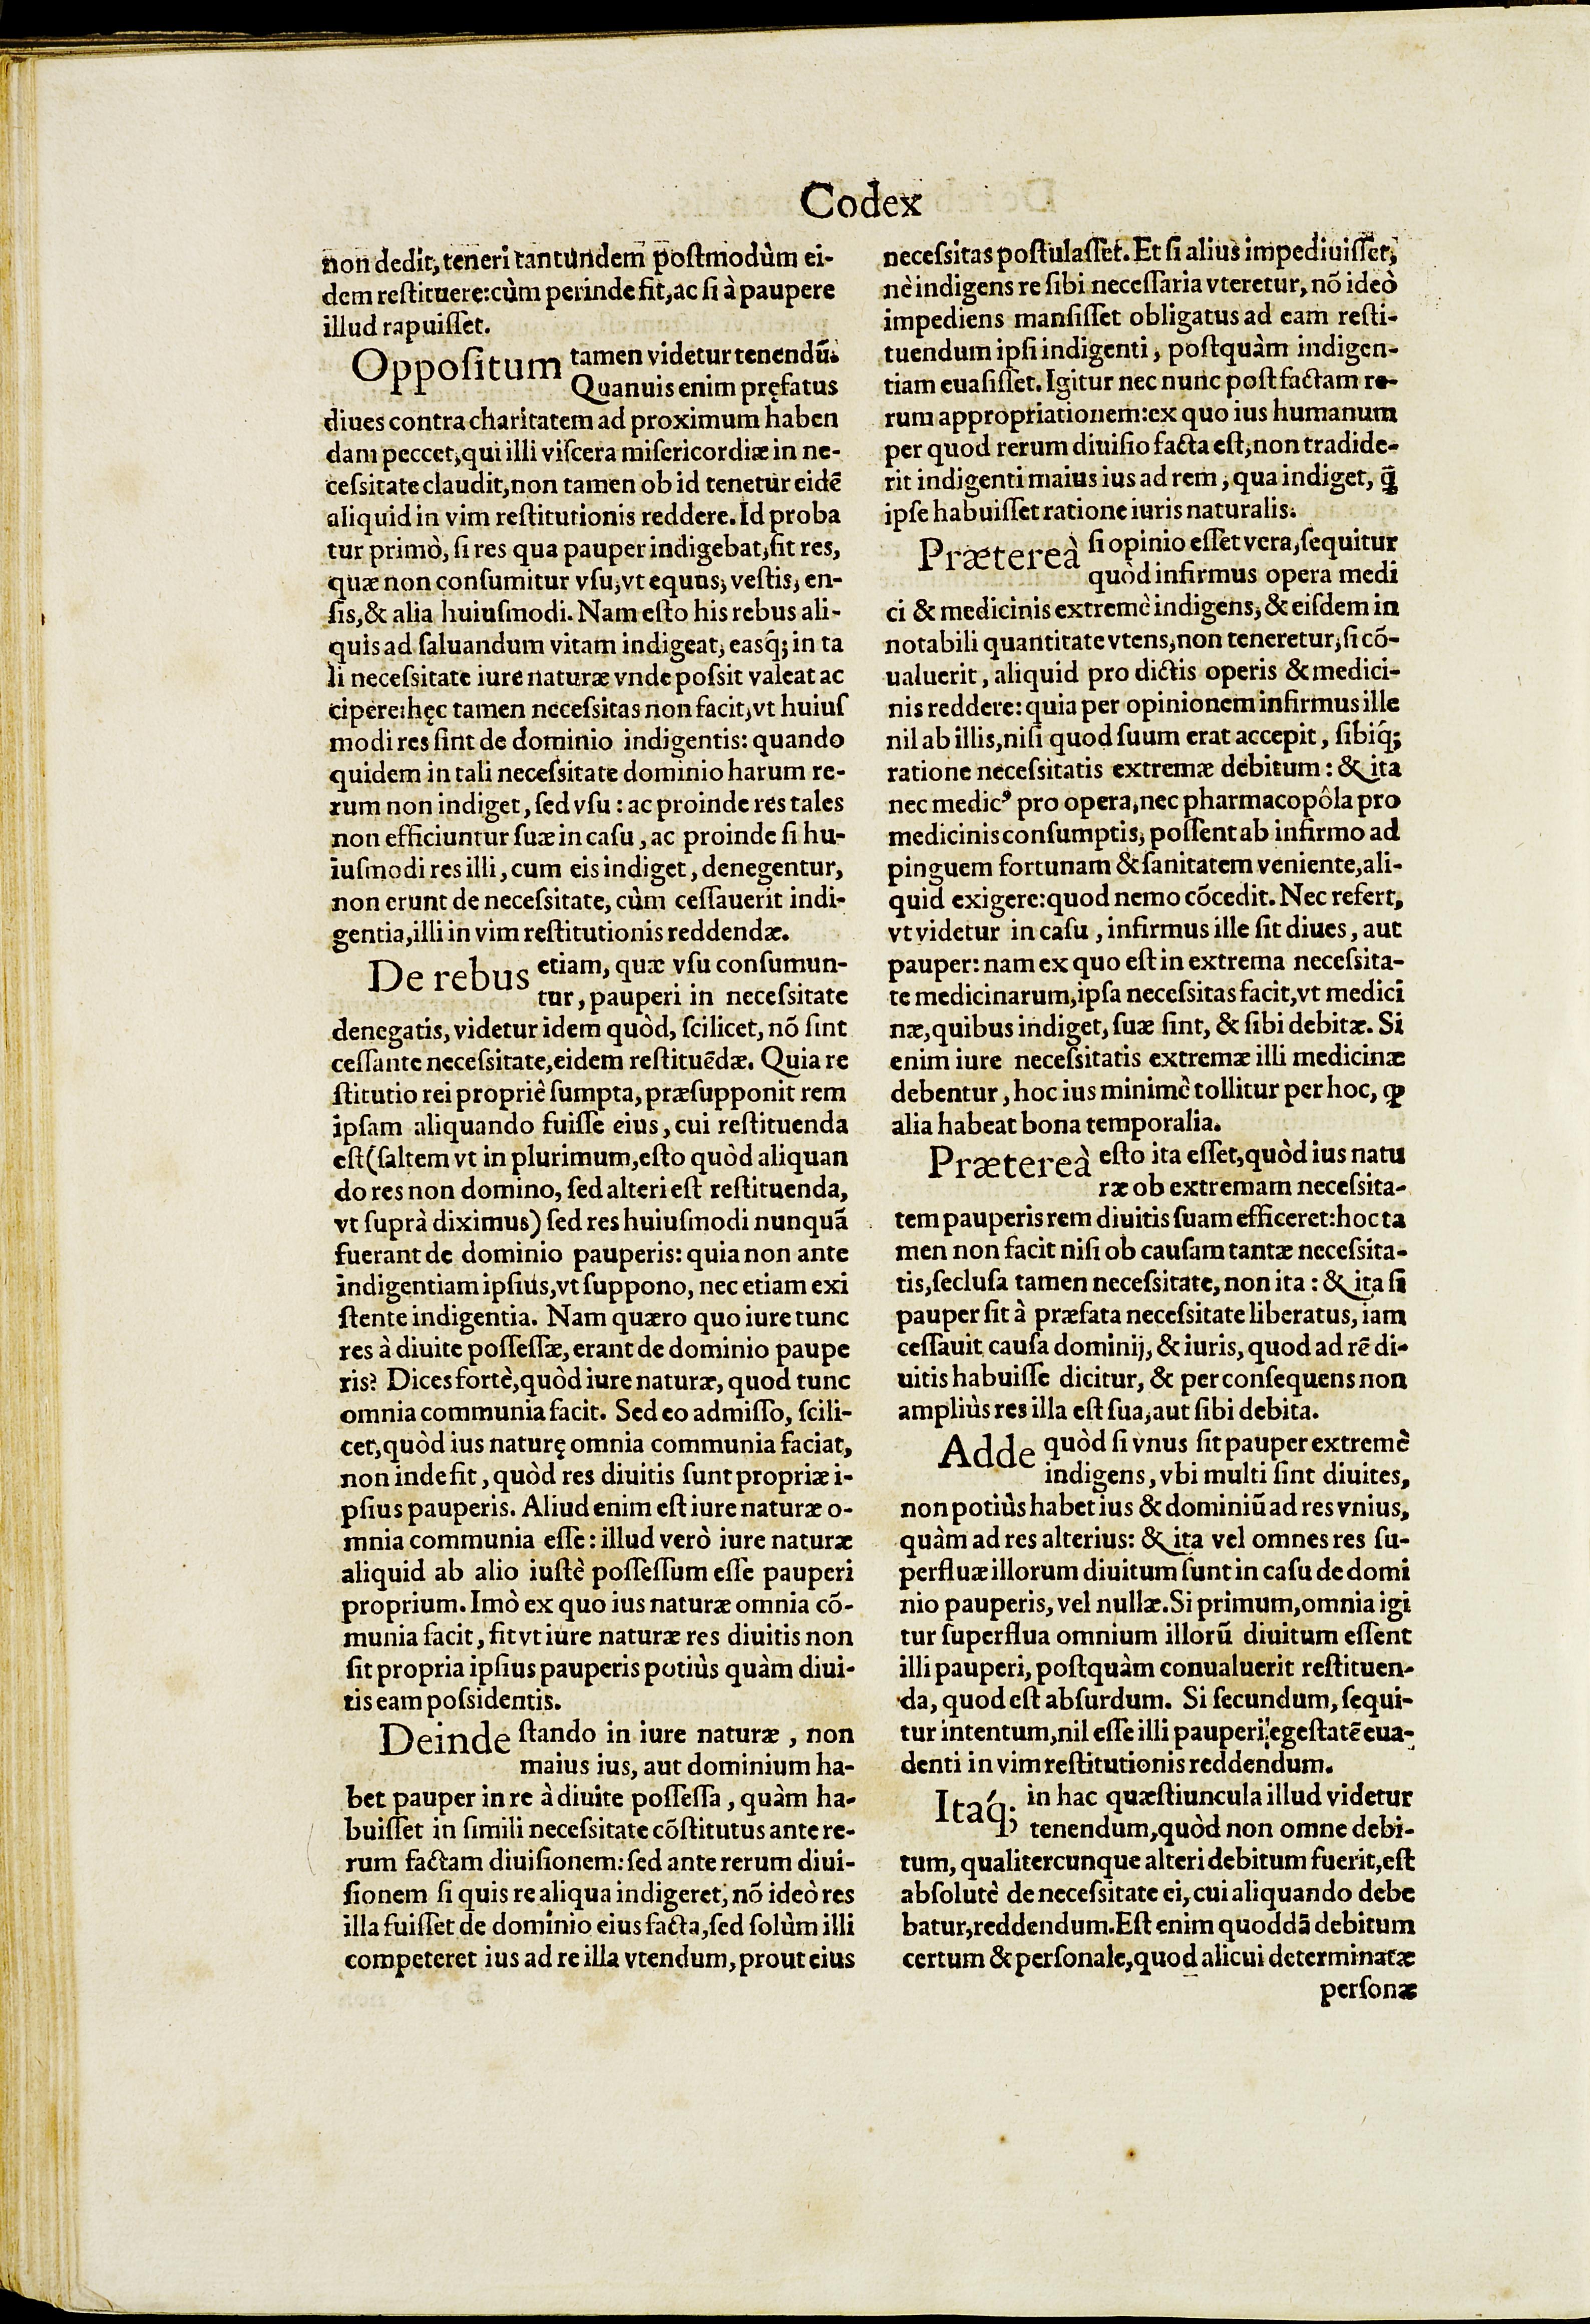 Codex
non dedit, teneri tantundem postmodùm ei-
dem reſtituere: cùm perinde fit, ac ſi à paupere
illud rapuiſſet.
Oppoſitum tamen videtur tenendũ.
Quanuis enim pręfatus
diues contra charitatem ad proximum haben
dam peccet, qui illi viſcera miſericordiæ in ne-
ceſsitate claudit, non tamen ob id tenetur eidẽ
aliquid in vim reſtitutionis reddere. Id proba
tur primò, ſi res qua pauper indigebat, ſit res,
quæ non conſumitur vſu, vt equus, veſtis, en-
ſis, & alia huiuſmodi. Nam eſto his rebus ali-
quis ad ſaluandum vitam indigeat, easq́; in ta
li neceſsitate iure naturæ vnde poſsit valeat ac
cipere: hęc tamen neceſsitas non facit, vt huiuſ
modi res ſint de dominio indigentis: quando
quidem in tali neceſsitate dominio harum re-
rum non indiget, ſed vſu: ac proinde res tales
non efficiuntur ſuæ in caſu, ac proinde ſi hu-
iuſmodi res illi, cum eis indiget, denegentur,
non erunt de neceſsitate, cùm ceſſauerit indi-
gentia, illi in vim reſtitutionis reddendæ.
De rebus etiam, quæ vſu conſumun-
tur, pauperi in neceſsitate
denegatis, videtur idem quòd, ſcilicet, nõ ſint
ceſſante neceſsitate, eidem reſtituẽdæ. Quia re
ſtitutio rei propriè ſumpta, præſupponit rem
ipſam aliquando fuiſſe eius, cui reſtituenda
eſt (ſaltem vt in plurimum, eſto quòd aliquan
do res non domino, ſed alteri eſt reſtituenda,
vt ſuprà diximus) ſed res huiuſmodi nunquã
fuerant de dominio pauperis: quia non ante
indigentiam ipſius, vt ſuppono, nec etiam exi
ſtente indigentia. Nam quæro quo iure tunc
res à diuite poſſeſſæ, erant de dominio paupe
ris? Dices fortè, quòd iure naturæ, quod tunc
omnia communia facit. Sed eo admiſſo, ſcili-
cet, quòd ius naturę omnia communia faciat,
non inde fit, quòd res diuitis ſunt propriæ i-
pſius pauperis. Aliud enim eſt iure naturæ o-
mnia communia eſſe: illud verò iure naturæ
aliquid ab alio iuſtè poſſeſſum eſſe pauperi
proprium. Imò ex quo ius naturæ omnia cõ-
munia facit, fit vt iure naturæ res diuitis non
ſit propria ipſius pauperis potiùs quàm diui-
tis eam poſsidentis.
Deinde ſtando in iure naturæ, non
maius ius, aut dominium ha-
bet pauper in re à diuite poſſeſſa, quàm ha-
buiſſet in ſimili neceſsitate cõſtitutus ante re-
rum factam diuiſionem: ſed ante rerum diui-
ſionem ſi quis re aliqua indigeret, nõ ideò res
illa fuiſſet de dominio eius facta, ſed ſolùm illi
competeret ius ad re illa vtendum, prout eius
neceſsitas poſtulaſſet. Et ſi alius impediuiſſet,
nè indigens re ſibi neceſſaria vteretur, nõ ideò
impediens manſiſſet obligatus ad eam reſti-
tuendum ipſi indigenti, poſtquàm indigen-
tiam euaſiſſet. Igitur nec nunc poſt factam re-
rum appropriationem: ex quo ius humanum
per quod rerum diuiſio facta eſt, non tradide-
rit indigenti maius ius ad rem, qua indiget, q̃
ipſe habuiſſet ratione iuris naturalis.
Prætereà ſi opinio eſſet vera, ſequitur
quòd infirmus opera medi
ci & medicinis extremè indigens, & eiſdem in
notabili quantitate vtens, non teneretur, ſi cõ-
ualuerit, aliquid pro dictis operis & medici-
nis reddere: quia per opinionem infirmus ille
nil ab illis, niſi quod ſuum erat accepit, ſibiq́;
ratione neceſsitatis extremæ debitum: & ita
nec medicꝰ pro opera, nec pharmacopôla pro
medicinis conſumptis, poſſent ab infirmo ad
pinguem fortunam & ſanitatem veniente, ali-
quid exigere: quod nemo cõcedit. Nec refert,
vt videtur in caſu, infirmus ille ſit diues, aut
pauper: nam ex quo eſt in extrema neceſsita-
te medicinarum, ipſa neceſsitas facit, vt medici
næ, quibus indiget, ſuæ ſint, & ſibi debitæ. Si
enim iure neceſsitatis extremæ illi medicinæ
debentur, hoc ius minimè tollitur per hoc, ꝙ
alia habeat bona temporalia.
Prætereà eſto ita eſſet, quòd ius natu
ræ ob extremam neceſsita-
tem pauperis rem diuitis ſuam efficeret: hoc ta
men non facit niſi ob cauſam tantæ neceſsita-
tis, ſecluſa tamen neceſsitate, non ita: & ita ſi
pauper ſit à præfata neceſsitate liberatus, iam
ceſſauit cauſa dominij, & iuris, quod ad rẽ di-
uitis habuiſſe dicitur, & per conſequens non
ampliùs res illa eſt ſua, aut ſibi debita.
Adde quòd ſi vnus ſit pauper extremè
indigens, vbi multi ſint diuites,
non potiùs habet ius & dominiũ ad res vnius,
quàm ad res alterius: & ita vel omnes res ſu-
perfluæ illorum diuitum ſunt in caſu de domi
nio pauperis, vel nullæ. Si primum, omnia igi
tur ſuperflua omnium illorũ diuitum eſſent
illi pauperi, poſtquàm conualuerit reſtituen-
da, quod eſt abſurdum. Si ſecundum, ſequi-
tur intentum, nil eſſe illi pauperi, egeſtatẽ eua-
denti in vim reſtitutionis reddendum.
Itaq́; in hac quæſtiuncula illud videtur
tenendum, quòd non omne debi-
tum, qualitercunque alteri debitum fuerit, eſt
abſolutè de neceſsitate ei, cui aliquando debe
batur, reddendum. Eſt enim quoddã debitum
certum & perſonale, quod alicui determinatæ
perſonæ